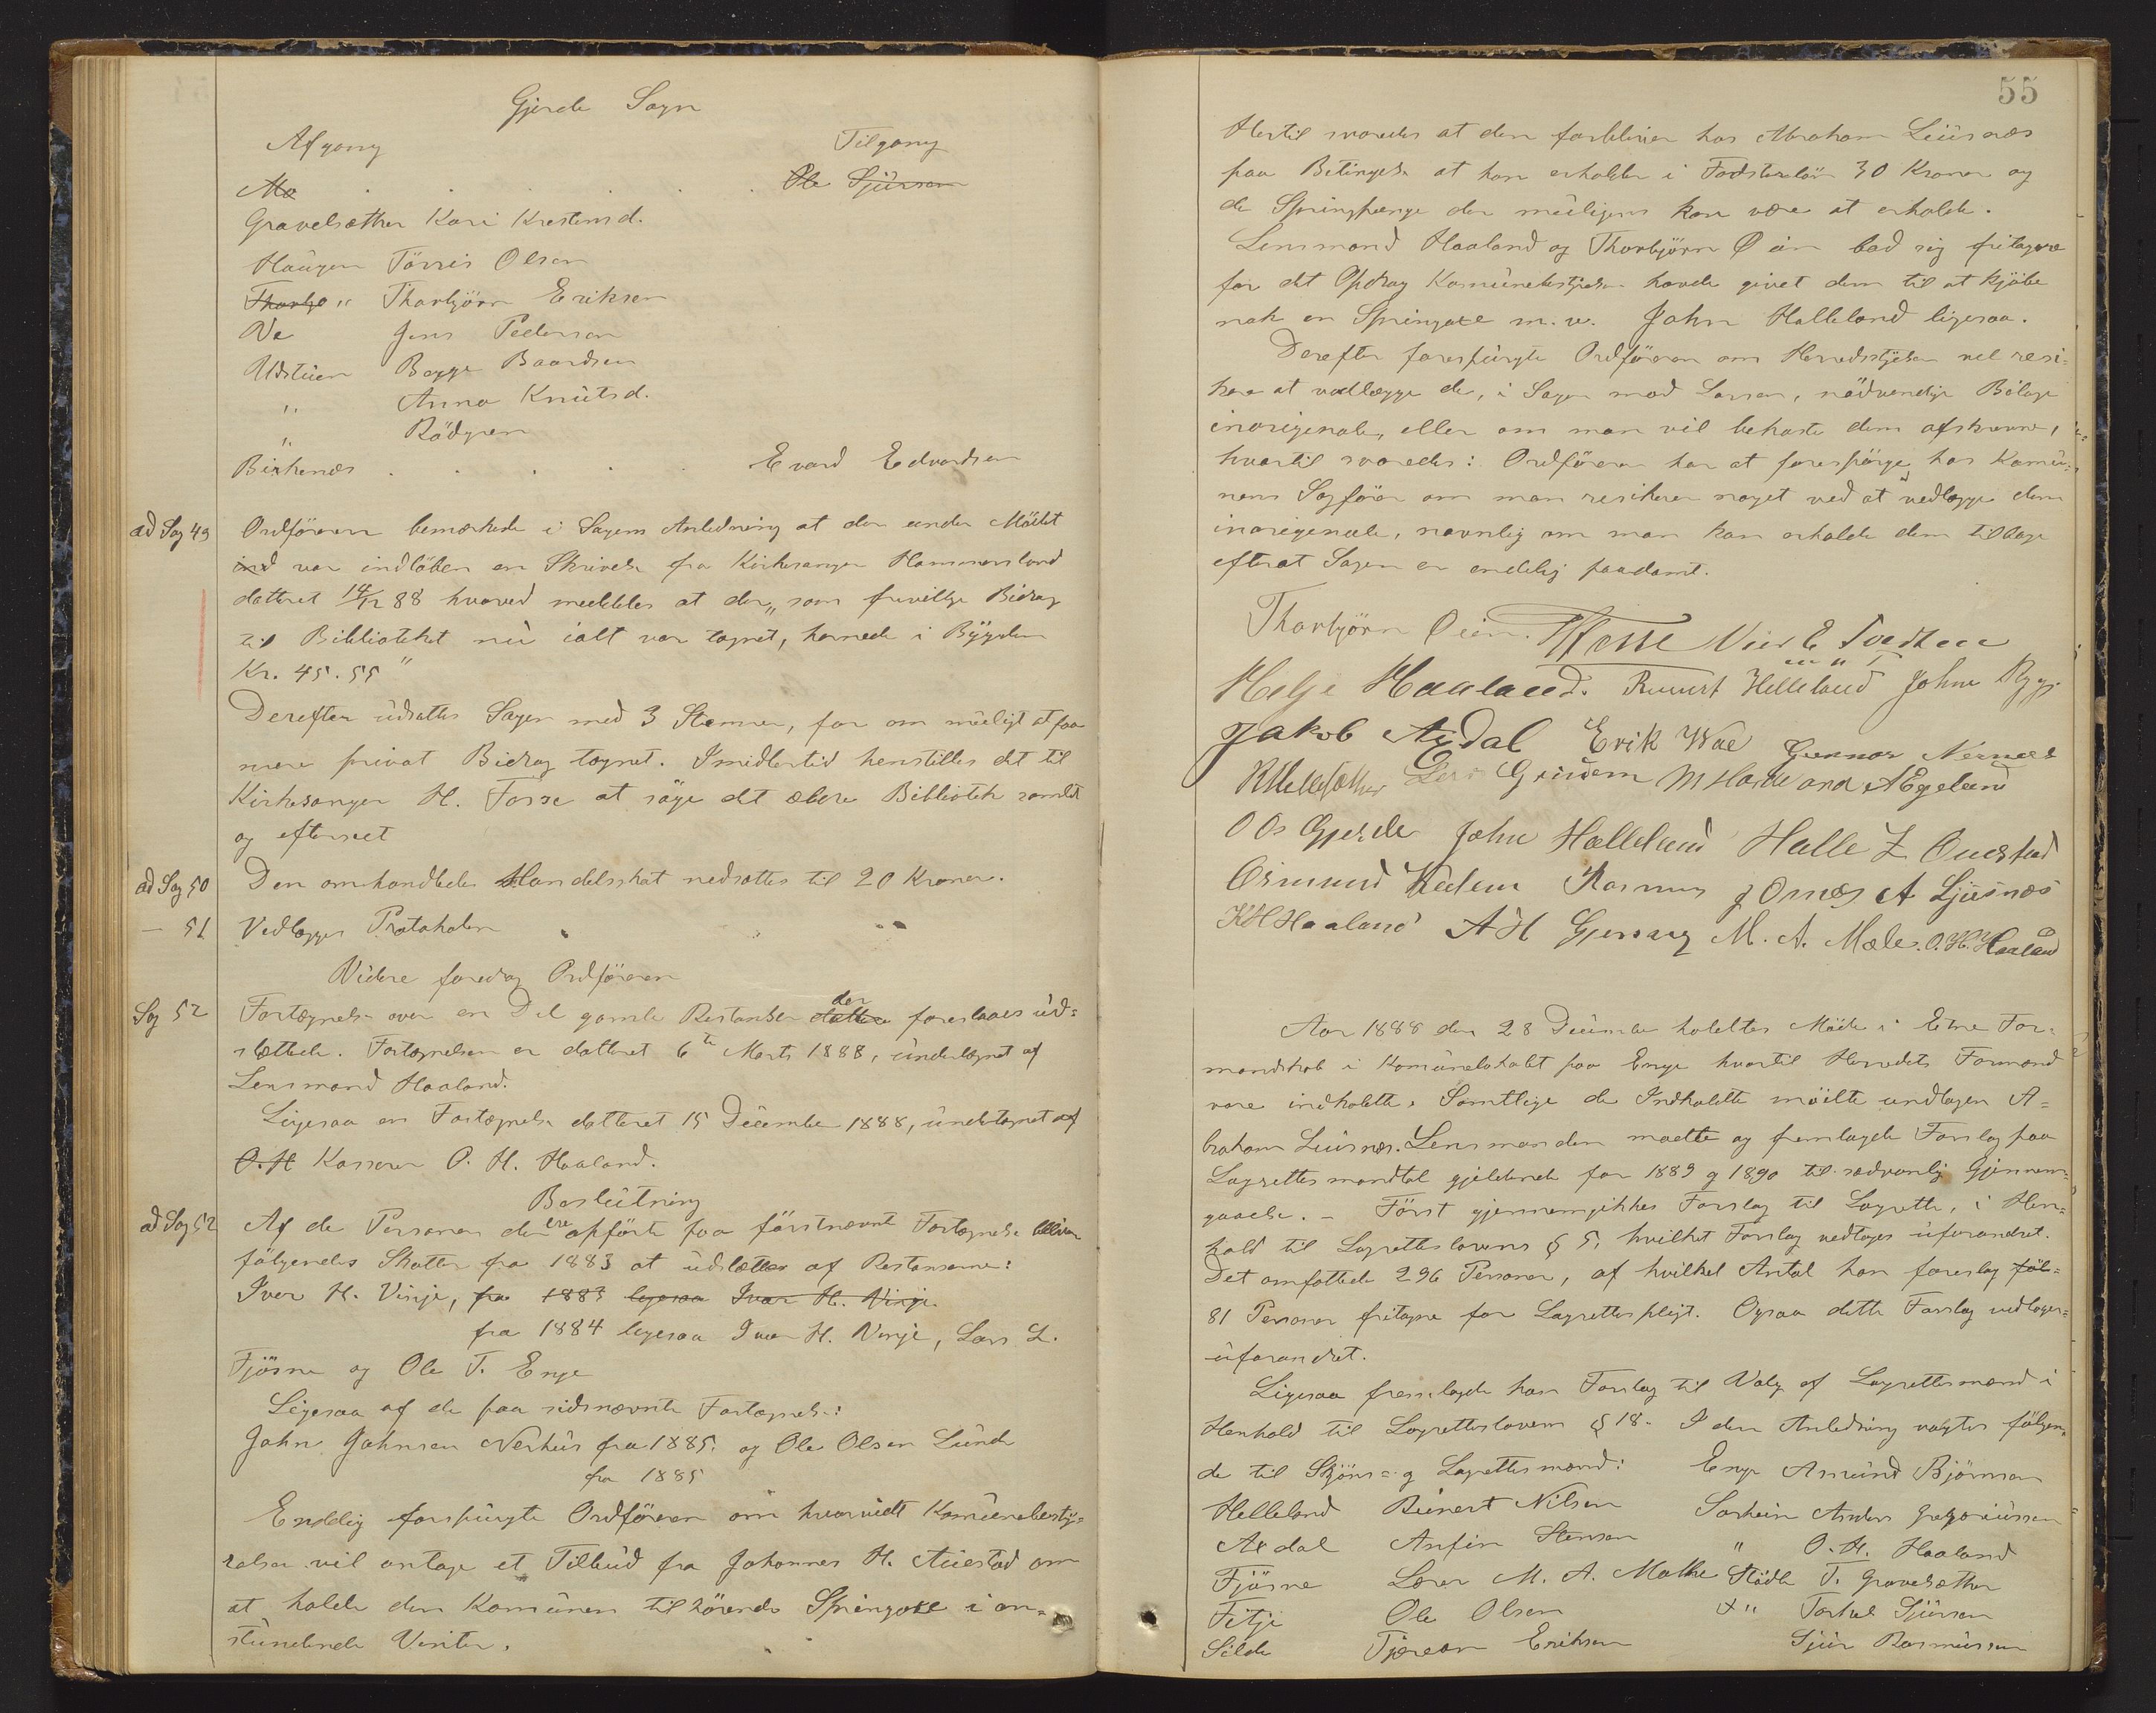 Gjerde Sogn
Afgang Tilgang
Mo . . . . . Ole Sjürsen
Gravelsæther Kari Krestensd.
Haugen Törris Olsen
Thorbjörn Eriksen
Va Jens Pedersen
Udstuen Bagge Baardsen
" Anna Knütsd.
" Rödgren
Birkenes . . . . . Evard Edvardsen
ad Sag 49 Ordföreren bemærkede i Sagens Anledning at der under Mödet
ind var indlöben en Skrivelse fra Kirkesanger Hammersland
datteret 14/12 88 hvorved meddeles at der „som frivillige Bidrag
til Bibliotheket nü ialt var tegnet, hernede i Bÿgden
Kr. 45.55"
Derefter üdsattes Sagen med 3 Stemmer, for om müeligt at faa
mere privat Bidrag tegnet. Imidlertid henstilles det til
Kirkesanger H. Fosse at söge det ældre Bibliotek samlet
og efterseet
ad Sag 50 Den omhandlede Handelsskat nedsattes til 20 Kroner.
— 51 Vedlægges Protokolen
Videre foredrog Ordföreren
Sag 52 Fortegnelse over en Del gamle Restanser der foreslaaes üd=
slettede. Fortegnelsen er datteret 6te Marts 1888, ündertegnet af
Lensmand Haaland.
Ligesaa en Fortegnelse datteret 15 December 1888, ündertegnet af
O. H Kasserer O. H. Haaland.
Beslütning
ad Sag 52 Af de Personer der ere opförte paa förstnævnte Fortegnelse bliver
fölgendes Skatter fra 1883 at üdslettes af Restanserne:
Iver H. Vinje, fra 1883 ligesaa Iver H. Vinje
fra 1884 ligesaa Iver H. Vinje, Lars L.
Fjösne og Ole T. Enge
Ligesaa af de paa sidsnævnte Fortegnelse:
John Johnsen Nerhüs fra 1885. og Ole Olsen Lünde
fra 1885
Endelig forespürgte Ordföreren om hvorvidt Komünebesty=
relsen vil antage et Tilbüd fra Johannes H. Aüestad om
at holde den Komünen tilhörende Springoxe i an=
stündende Vinter.
55
Hertil svaredes at den forbliver hos Abraham Lüüsnæs
paa Betingelse at han erholder i Fodsterlön 30 Kroner og
de Springpenge der müeligens kan være at erholde.
Lensmand Haaland og Thorbjörn Öien bad sig fritagne
for det Opdrag Komünebestyrelsen havde givet dem til at kjöbe
nok en Springoxe m. v. John Halleland ligesaa.
Derefter forespürgte Ordföreren om Herredsstyrelsen vil resi=
kere at vedlægge de, i Sagen mod Larsen, nödvendige Bilage
inoriginale, eller om man vil bekoste dem afskrevne,
hvortil svaredes: Ordföreren har at forespörge hos Komü=
nens Sagförer om man resikerer noget ved at vedlægge dem
inoriginale, navnlig om man kan erholde dem tilbage
efterat Sagen er endelig paadömt.
Thorbjörn Öien. HFosse
Helge Haaland. Reinert Helleland John Rygg
Jakob Axdal Erik Wae Gunnar Nernæs
Lars Grindem A Egeland
O Os Gjerde John Halleland Halle L Auestad
Osmund Kaldem Rasmus J Ornes A Ljüsnæs
KHHaaland A H Gjerdevig M. A. Mæle. O. H. Haaland
Aar 1888 den 28 December holdtes Möde i Etne For=
mandskab i Komünelokalet paa Enge hvortil Herredets Formænd
vare indkaldte. Samtlige de Indkaldte mödte undtagen A=
braham Lüsnæs. Lensmanden mödte og fremlagde Forslag paa
Lagrettesmandtal gjeldende for 1889 og 1890 til sædvanlig Gjennem=
gaaelse. – Först gjennemgikkes Forslag til Lagrette, i Hen=
hold til Lagretteslovens § 5. hvilket Forslag vedtages üforandret.
Det omfattede 296 Personer, af hvilket Antal han foreslog föl=
81 Personer fritagne for Lagrettespligt. Ogsaa dette Forslag vedtoges=
üforandret.
Ligesaa fremlagde han Forslag til Valg af Lagrettesmænd i
Henhold til Lagretteslovens § 18. I den Anledning valgtes fölgen=
de til Skjöns= og Lagrettesmænd: Enge Amünd Björnsen
Helleland Reinert Nilsen Sørheim Anders Gregoriüssen
Axdal Anfin Stensen " O. H. Haaland
Fjösne Lærer M. A. Mæhle Stödle T. Gravelsæther
Fitje Ole Olsen + " Torkel Sjürsen
Silde Tjeran Eriksen Sjür Rasmüssen